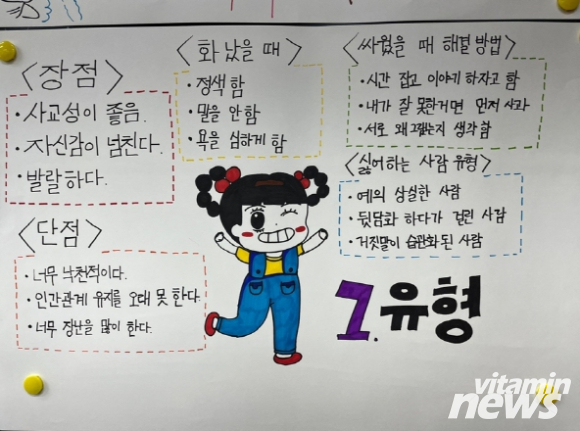 <장점>
· 사교성이 좋음.
· 자신감이 넘친다.
· 발랄하다.
<단점>
· 너무 낙천적이다.
· 인간관계 유지를 오래 못 한다.
· 너무 장난을 많이 한다.
<화 났을 때>
· 정색함
· 말을 안함
· 욕을 심하게 함
<싸웠을 때 해결 방법>
· 시간 잡고 이야기 하자고 함
· 내가 잘 못한거면 먼저 사과
· 서로 왜 그랬는지 생각 함
<싫어하는 사람 유형>
· 예의 상실한 사람
· 뒷담화 하다가 걸린 사람
· 거짓말이 습관화 된 사람
7.유형
vitamin
news